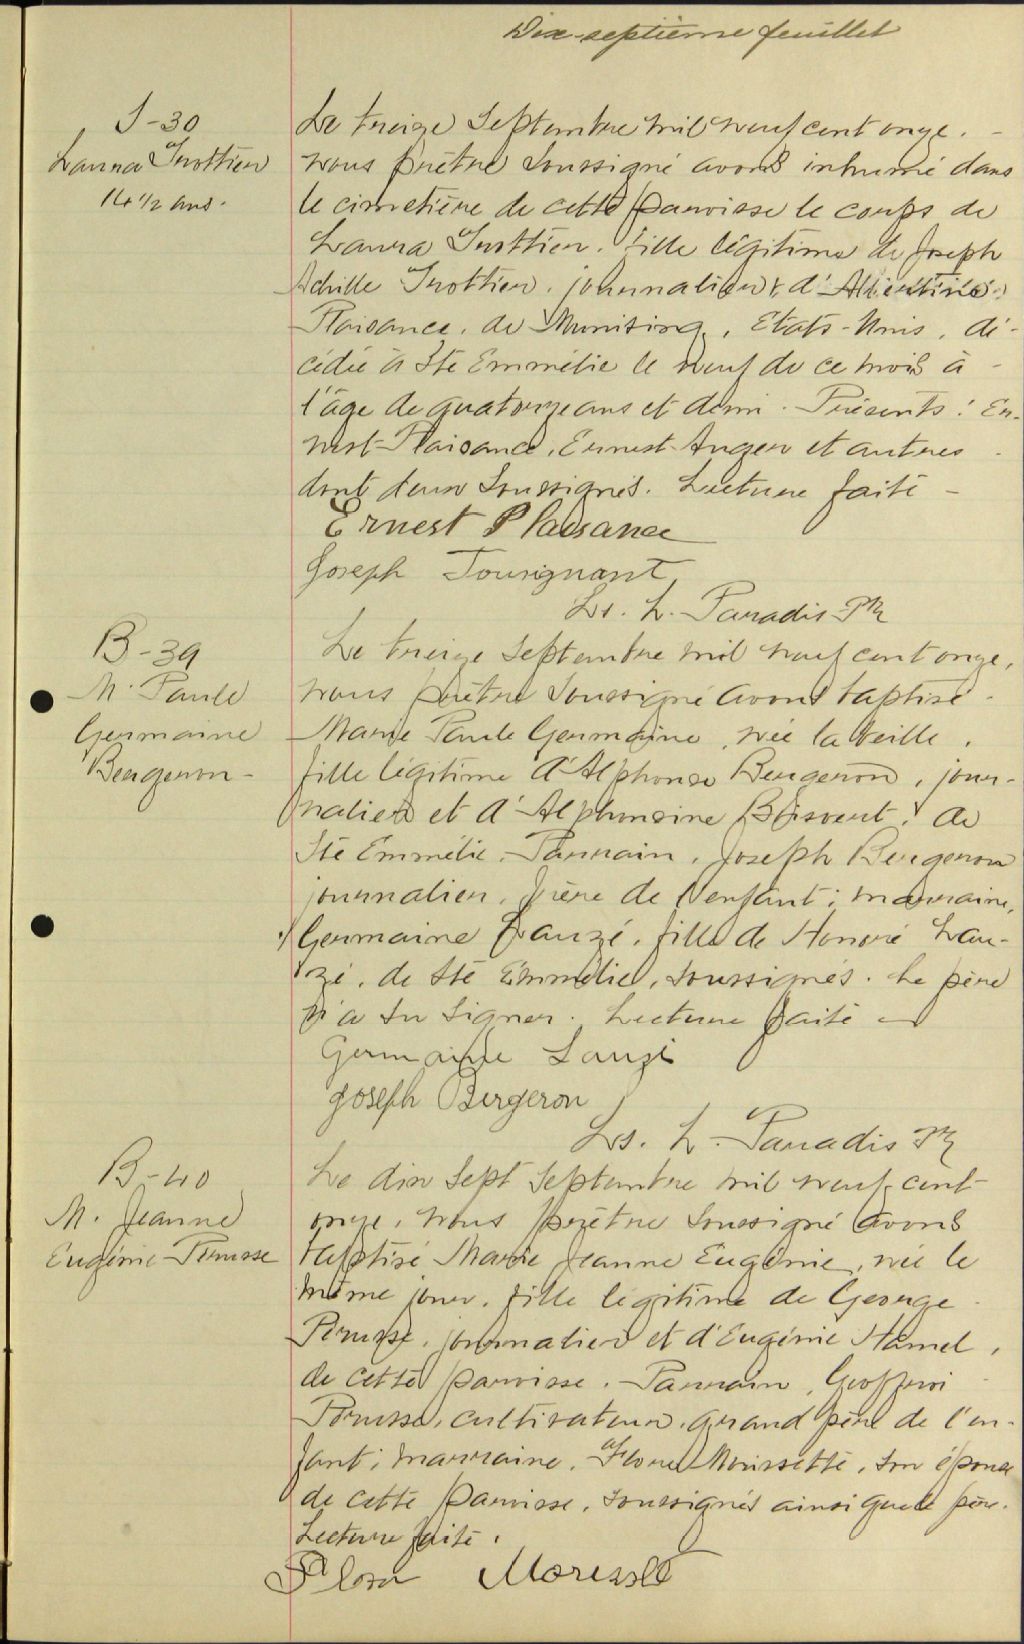 Dix-septième feuillet
S-30
Laura Trottier
14 1/2 ans.
Le treize Septembre mil neuf cent onze.
nous prêtre soussigné avons inhumé dans
le cimetière de cette paroisse le corps de
Laura Trottier, fille légitime de Joseph
Achille Trottier, journalier & d'Albertine
Plaisance, de Munising, Etats-Unis, dé-
cédée à Ste Emmélie le neuf de ce mois à
l'âge de quatorze ans et demi. Présents: Er-
nest Plaisance, Ernest Auger et autres
dont deux soussignés. Lecture faite
Ernest Plaisance
Joseph Tousignant
Ls. L. Paradis Ptr
B-39
M. Paule
Germaine
Bergeron
Le treize Septembre mil neuf cent onze,
nous prêtre soussigné avons baptisé
Marie Paule Germaine, née la veille,
fille légitime d'Alphonse Bergeron, jour-
nalier et d'Alphonsine Boisvert, de
Ste Emmélie. Parrain, Joseph Bergeron
journalier, frère de l'enfant; marraine,
Germaine Lauzé, fille de Honoré Lau-
zé, de Ste Emmélie, soussignés. Le père
n'a su signer. Lecture faite
Germaine Lauzé
Joseph Bergeron
Ls. L. Paradis Ptr
B-40
M. Jeanne
Eugénie Perusse
Le dix sept Septembre mil neuf cent
onze, nous prêtre soussigné avons
baptisé Marie Jeanne Eugénie, née le
même jour, fille légitime de George
Perusse, journalier et d'Eugénie Hamel,
de cette paroisse. Parrain, Geoffroi
Perusse, cultivateur, grand père de l'en-
fant; marraine, Flore Morissette, son épouse
de cette paroisse, soussignés ainsi que le père.
Lecture faite.
Flora Moressett